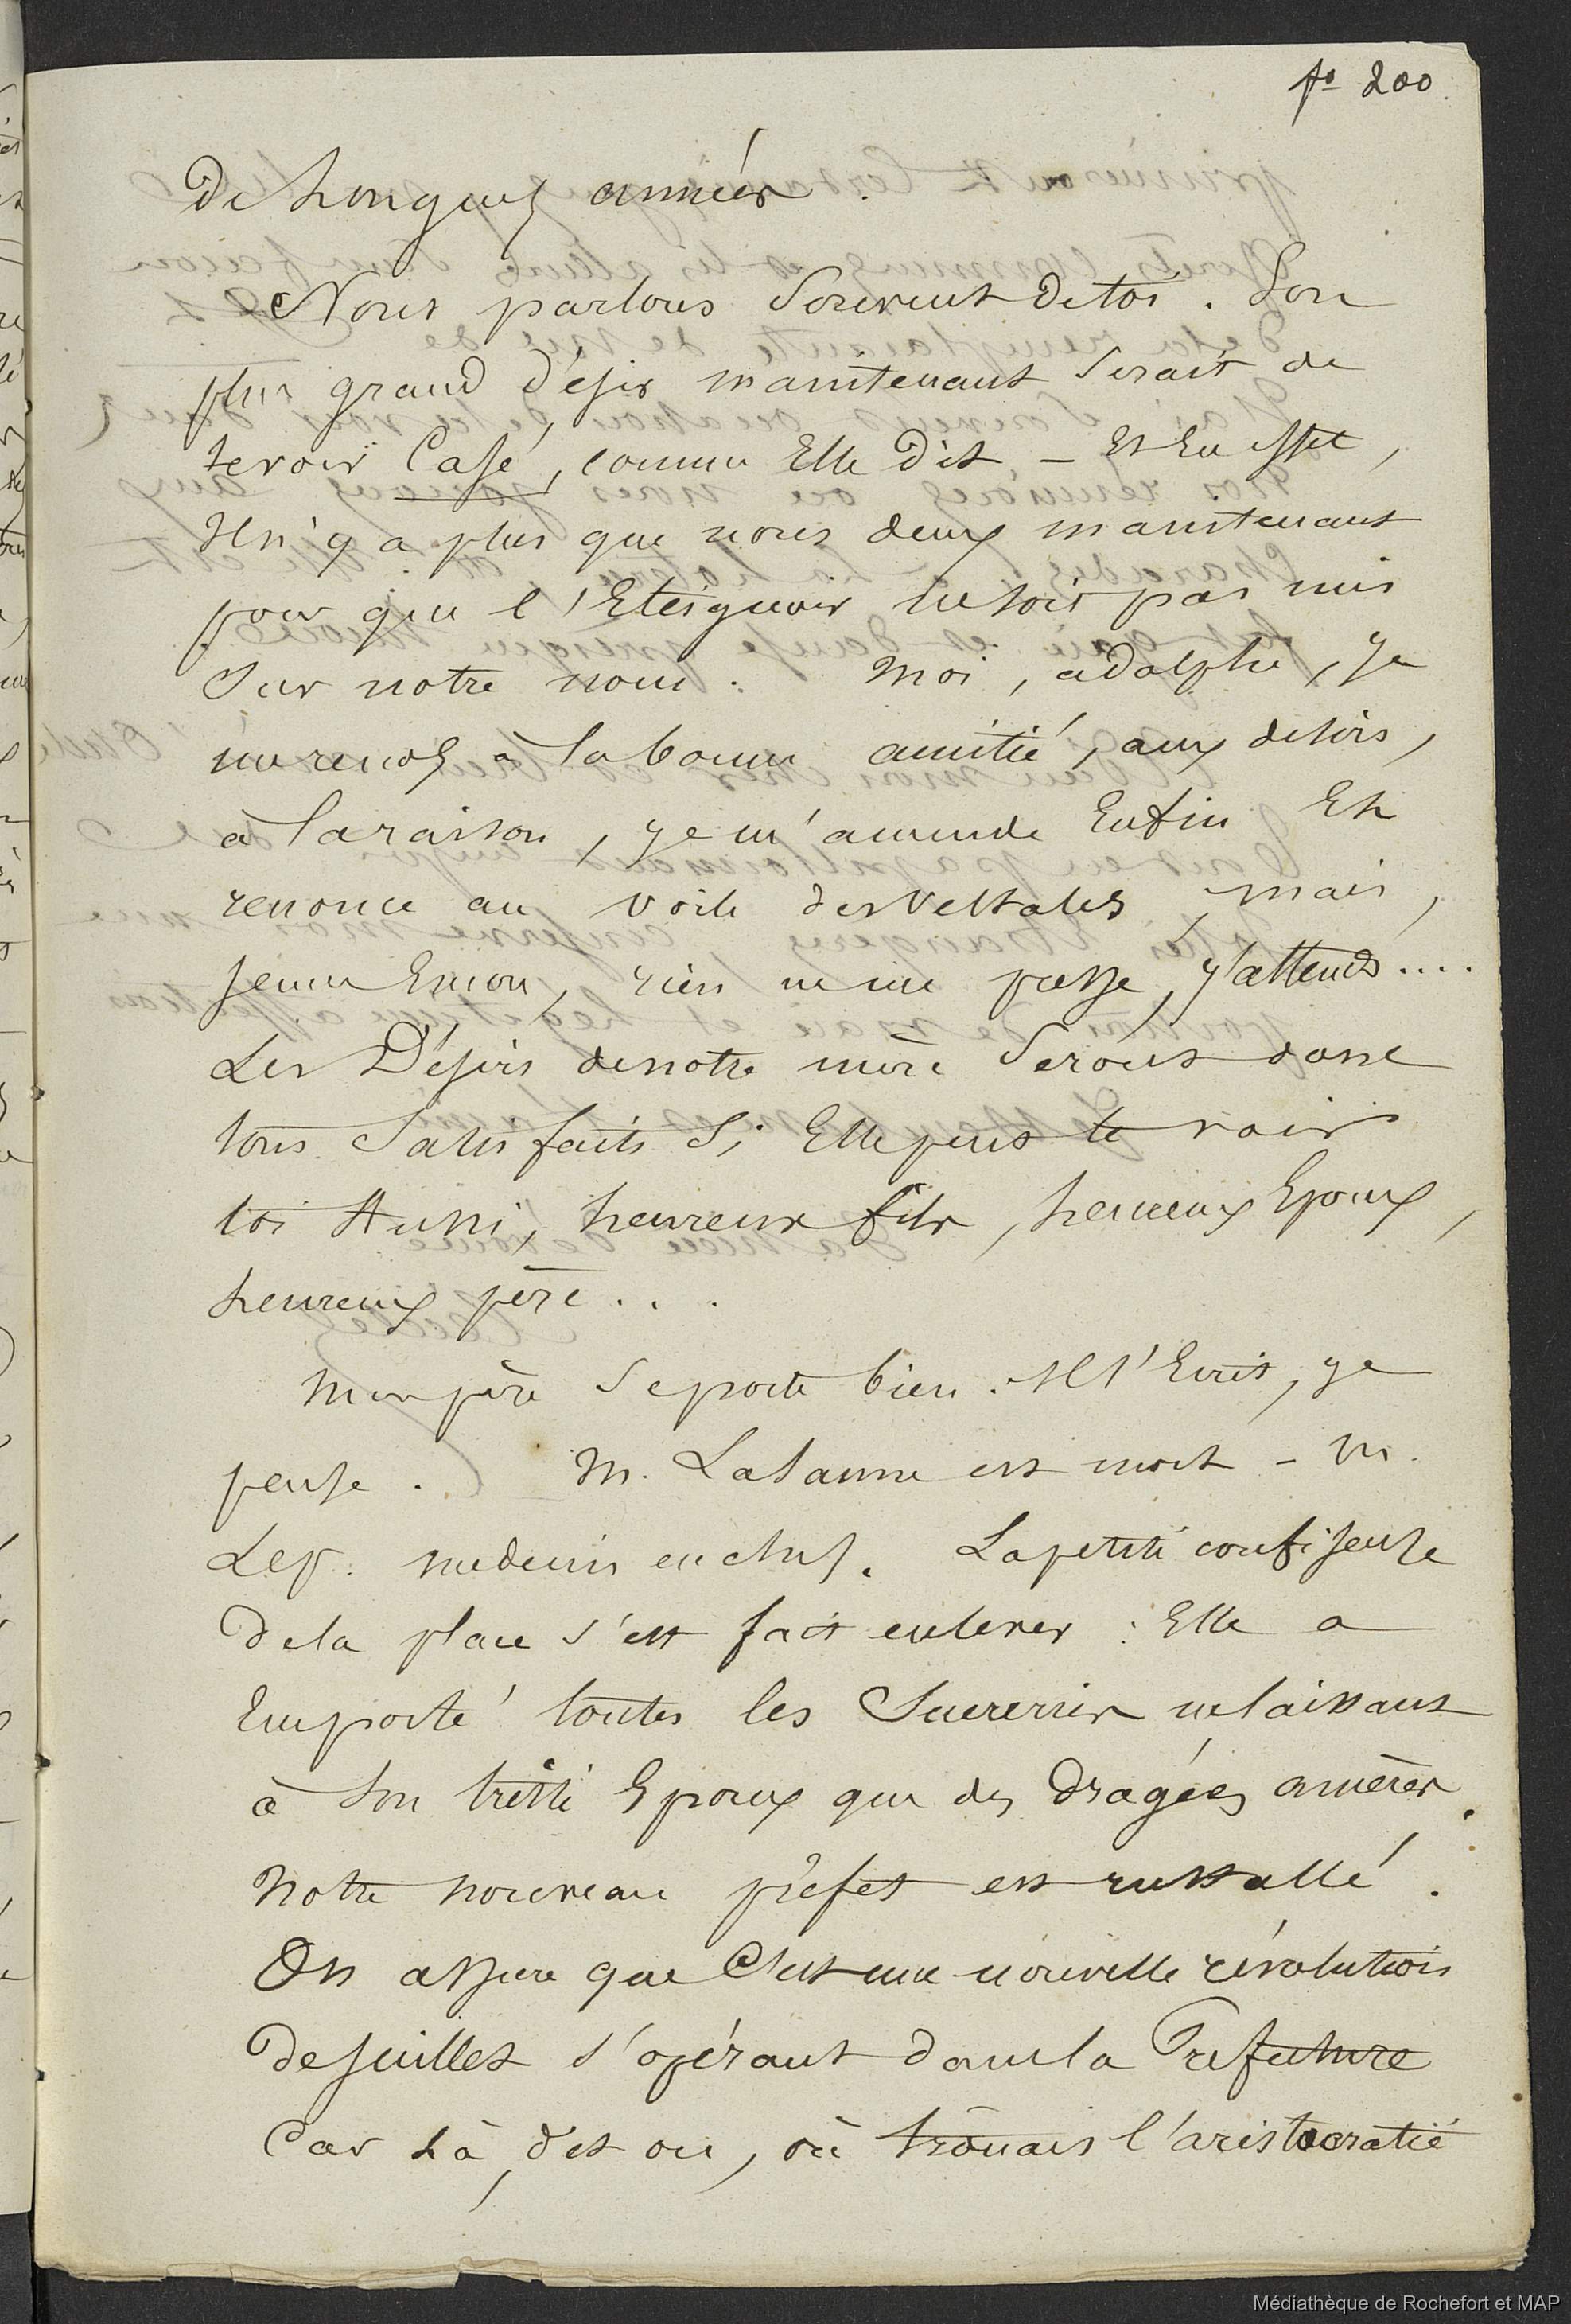 fo 200
De Longues années.
Nous parlons Souvent de toi. Son
plus grand désir maintenant Serait de
te voir Casé, comme Elle dit – Et En effet,
Il n'y a plus que nous deux maintenant
pour que l'Eteignoir ne soit pas mis
Sur notre nom. Moi, adolphe, je
me rends à la bonne amitié, aux désirs,
à la raison, je m'amende Enfin Et
renonce au voile des Vestales, mais,
jeune Encor, rien ne me presse, j'attends....
Les Désirs de notre mère Seront donc
tous Satisfaits Si Elle peut te voir
toi Aussi, heureux fils, heureux Epoux,
heureux père...
Mon père Se porte bien. Il t'Ecrit, je
pense. M. Lasanne est mort – M.
Lep. médecin en chef. La petite confiseuse
De la place s'est fait enlever : Elle a
Emporté toutes les Sucreries ne laissant
à Son triste Epoux que des Dragées amères.
Notre nouveau préfet est installé.
On assure que C'est une nouvelle révolution
De juillet s'opérant dans la Préfecture
Car Là, dit on, où trônais l'aristocratie
Médiathèque de Rochefort et MAP